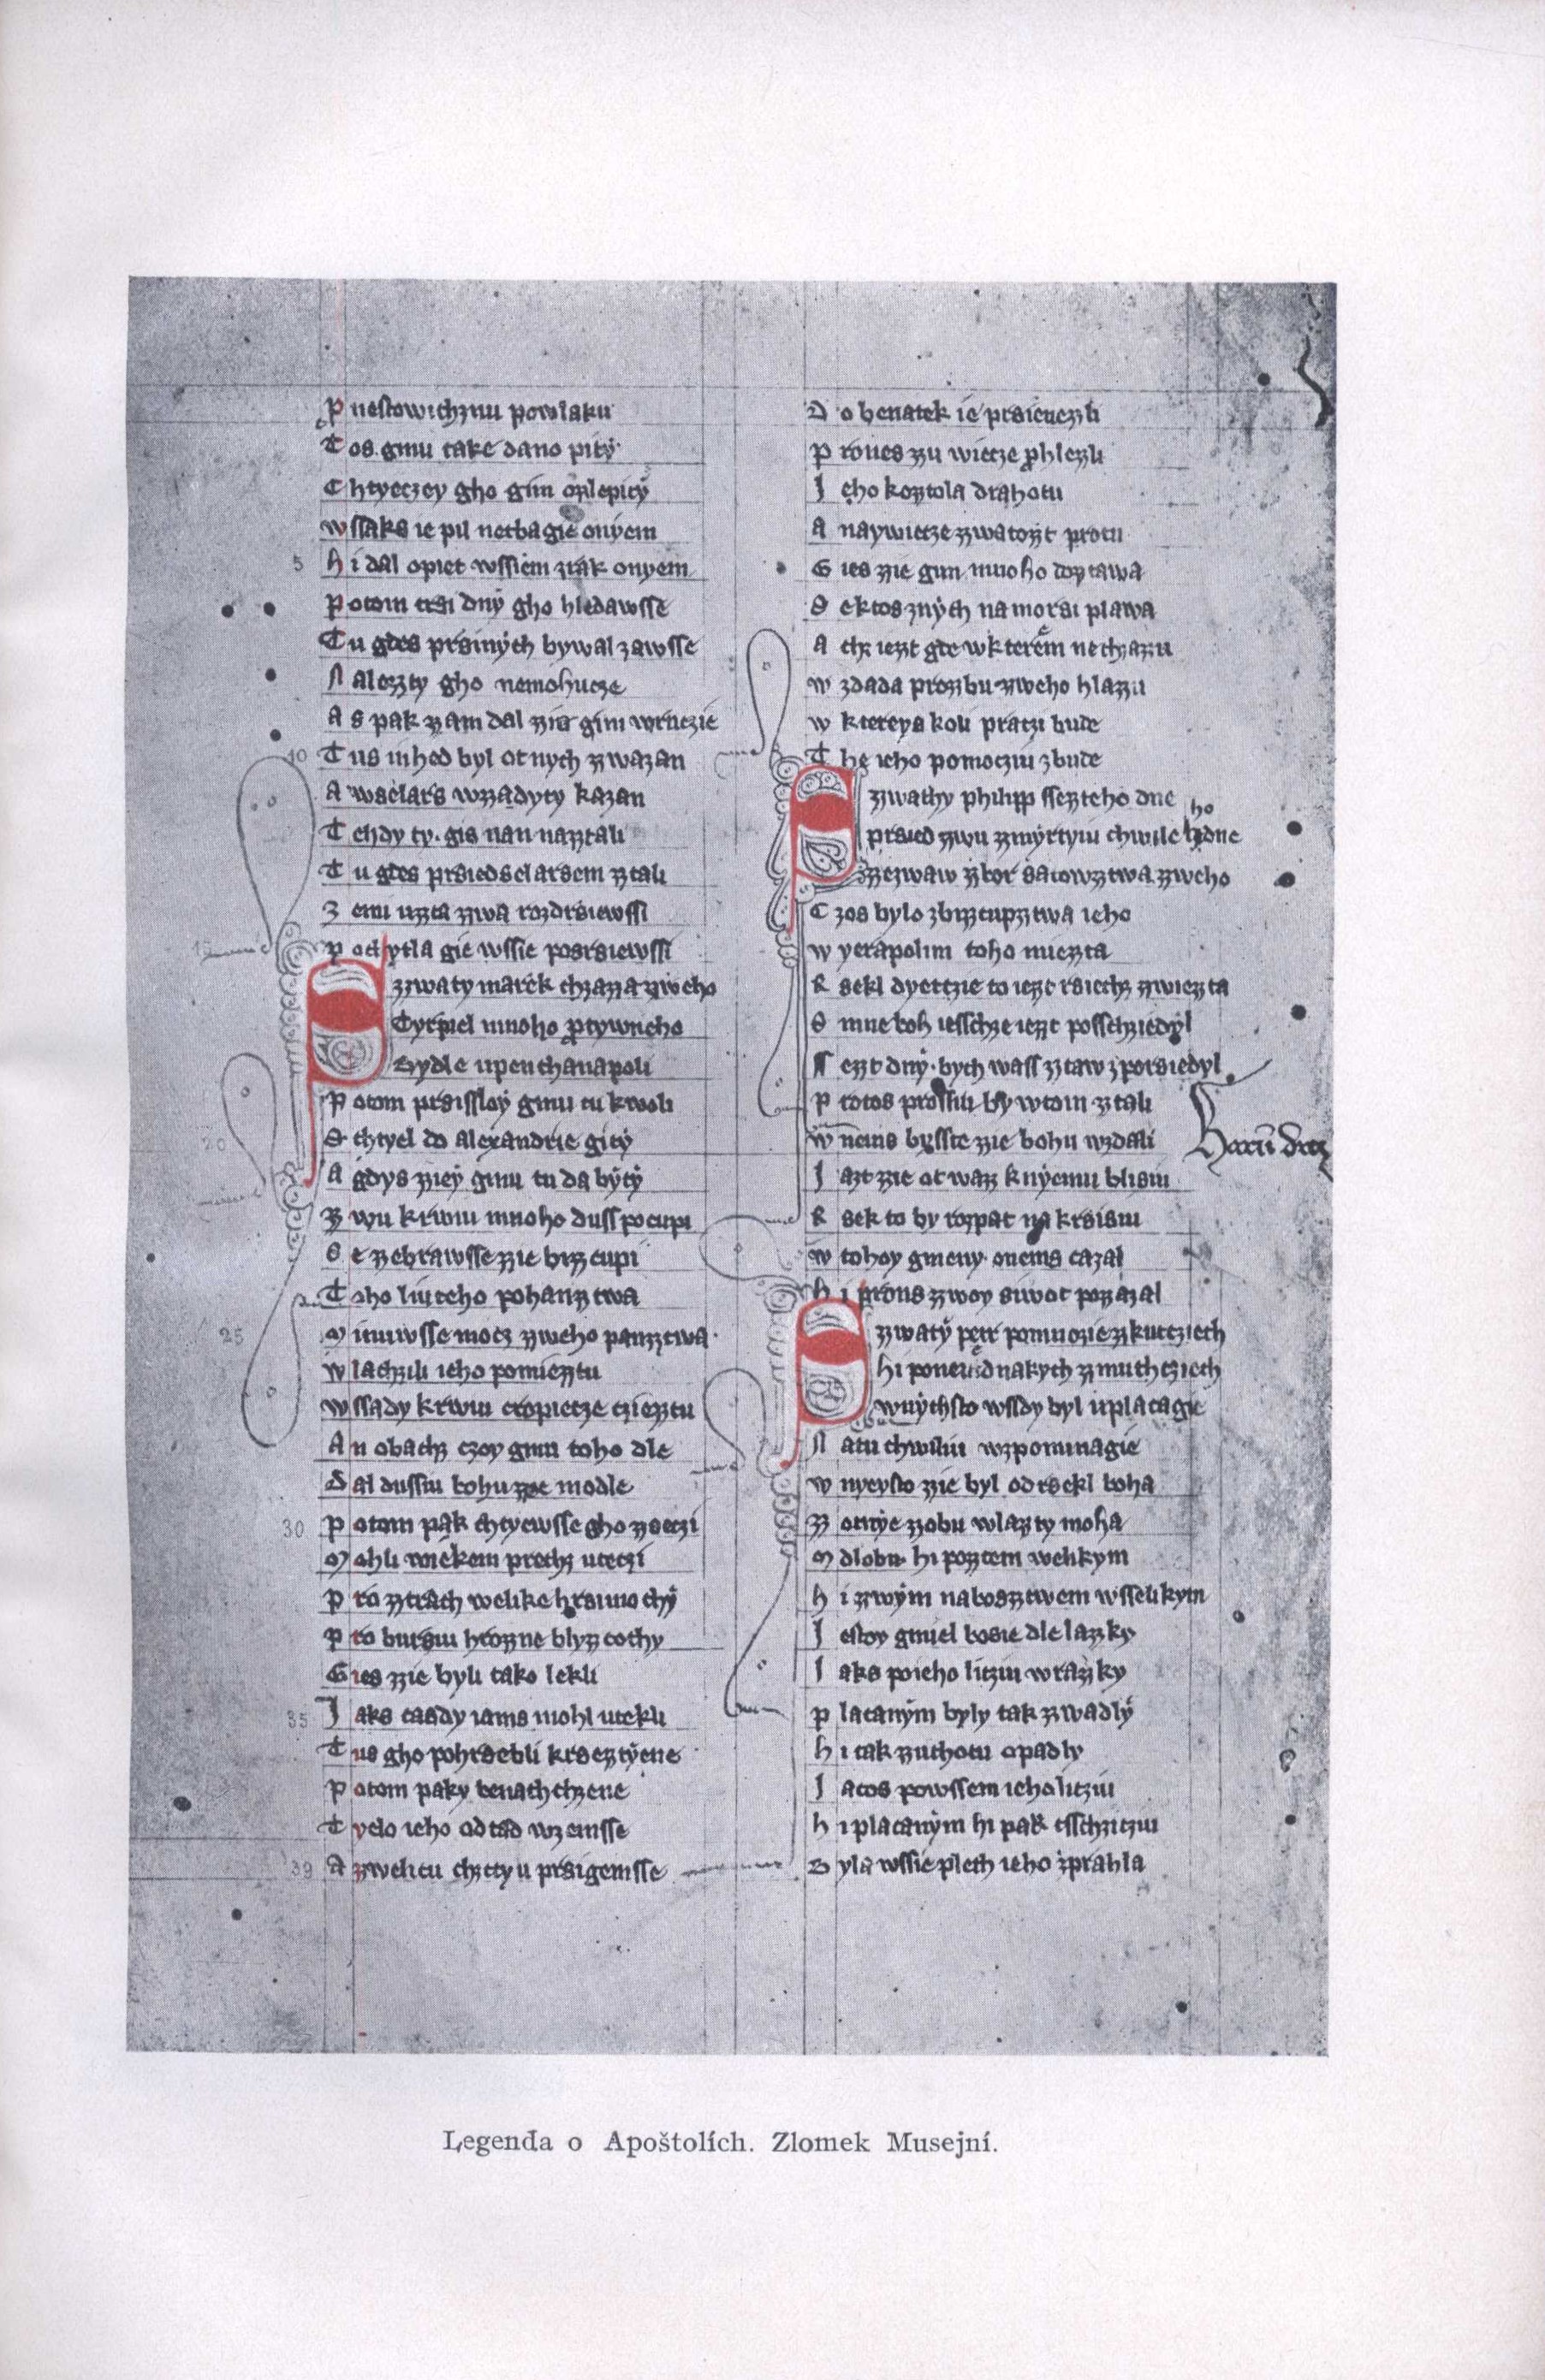 P nestowichznu powlaku
T os gmu take dano pity
C htyeczey gho gim ozlepity
w ssaks ie pil netbagie onyem
5 h i dal opiet wssiem zrak onyem
P otom trsi dny gho hledawsse
T u gdes prsinych bywal zawsse
N alezzty gho nemohucze
A s pak zzam dal zzie gim wruczie
10 T us inhed byl ot nych zzwazan
A wselars wzzadyty kazan
T ehdy ty gis nan naztali
T u gdes prsiedselarsem ztali
Z emu uzta zzwa rozdrsiewssi
15 P ochytla gie wssie posrsiewssi
P zzwaty marek chzazza zweho
Tyrpiel mnoho protywneho
Bydle upenthanapoli
P otom prsissloy gmu tu kwoli
20 S chtyel do alexandrie gity
A gdys zziey gmu tu da byty
Z wu krwiu mnoho duss pocupi
S e zebrawsse zzie bizcupi
T oho liuteho pohanztwa
25 M inuwsse mocz zweho panzztwa
w lachzili ieho pomieztu
w ssady krwiu cropiecze cziezztu
A n obachz czoy gmu toho dle
D al dussiu bohu zze modle
30 P otom pak chtyewsse gho zzeczi
M ohli wniekem prochz uteczi
P ro ztrach welike hrsimochy
P ro bursiu hrozne blyzcothy
G ies zzie byli tako lekli
35 J aks casdy iams mohl utekli
T us gho pohrsebli krsezztyene
P otom paky benathchzene
T yelo ieho odtad wzemsse
39 A zwelicu chzcty u prsigemsse
D o benatek ie prsiewezli
P roues zu wiecze prohlezli
J eho koztola drahotu
A naywiecze zzwatozt protu
G ies zzie gim mnoho doztawa
S ektos znych na morsi plawa
A chz iezzt gde wkterem nechzazu
w zdada prozzbu zweho hlazzu
w ktereys koli praczi bude
T he ieho pomocziu zbude
P zzwathy philipp ssezteho dne
prsied zzwu zmyrtyiu chwile hodne ho
zzezwaw zbor satowztwa zzweho
C zos bylo zbizcupztwa ieho
w yerapolim toho miezta
R sekl dyetczie to iezt rsiechz zwiezta
S mne boh iesschze iezt posschziedyl
S ezzt dny bych wass ztaw zporsiedyl
P rotos prossiu by wtom ztali
w nems bysste zzie bohu wzdali
Haeru draz
J azt zzie ot wazz knyemu blisiu
R sek to by rozpat na krsisiu
w tohoy gmeny onems cazal
h i prons zzwoy siwot pozazal
P zzwaty petr pomnozie zkutcziech
hi ponewednakych zmuthcziech
wnychsto wssdy byl uplacagie
N atu chwiliu wzpominagie
w nyeysto zzie byl odrsekl boha
Z onye zzobu wlazty moha
M dlobu hi pozztem welikym
h i zzwym nabosztwem wsselikym
J estoy gmiel bosie dle lazzky
J aks poieho licziu wrazky
P lacanym byly tak zwadly
h i tak zuchotu opadly
J acos powssem ieho licziu
h i placanym hi pak tsschzicziu
B yla wssie pleth ieho zprahla
Legenda o Apoštolích. Zlomek Musejní.